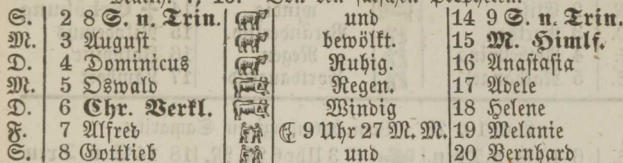 S. 2 8 S. n. Trin. und 14 9 S. n. Trin.
M. 3 August bewölkt. 15 M. Himlf.
D. 4 Dominicus Ruhig. 16 Anastasia
M. 5 Oswald Regen. 17 Adele
D. 6 Chr. Verkl. Windig 18 Helene
F. 7 Alfred ☾ 9 Uhr 27 M. M. 19 Melanie
S. 8 Gottlieb und 20 Bernhard